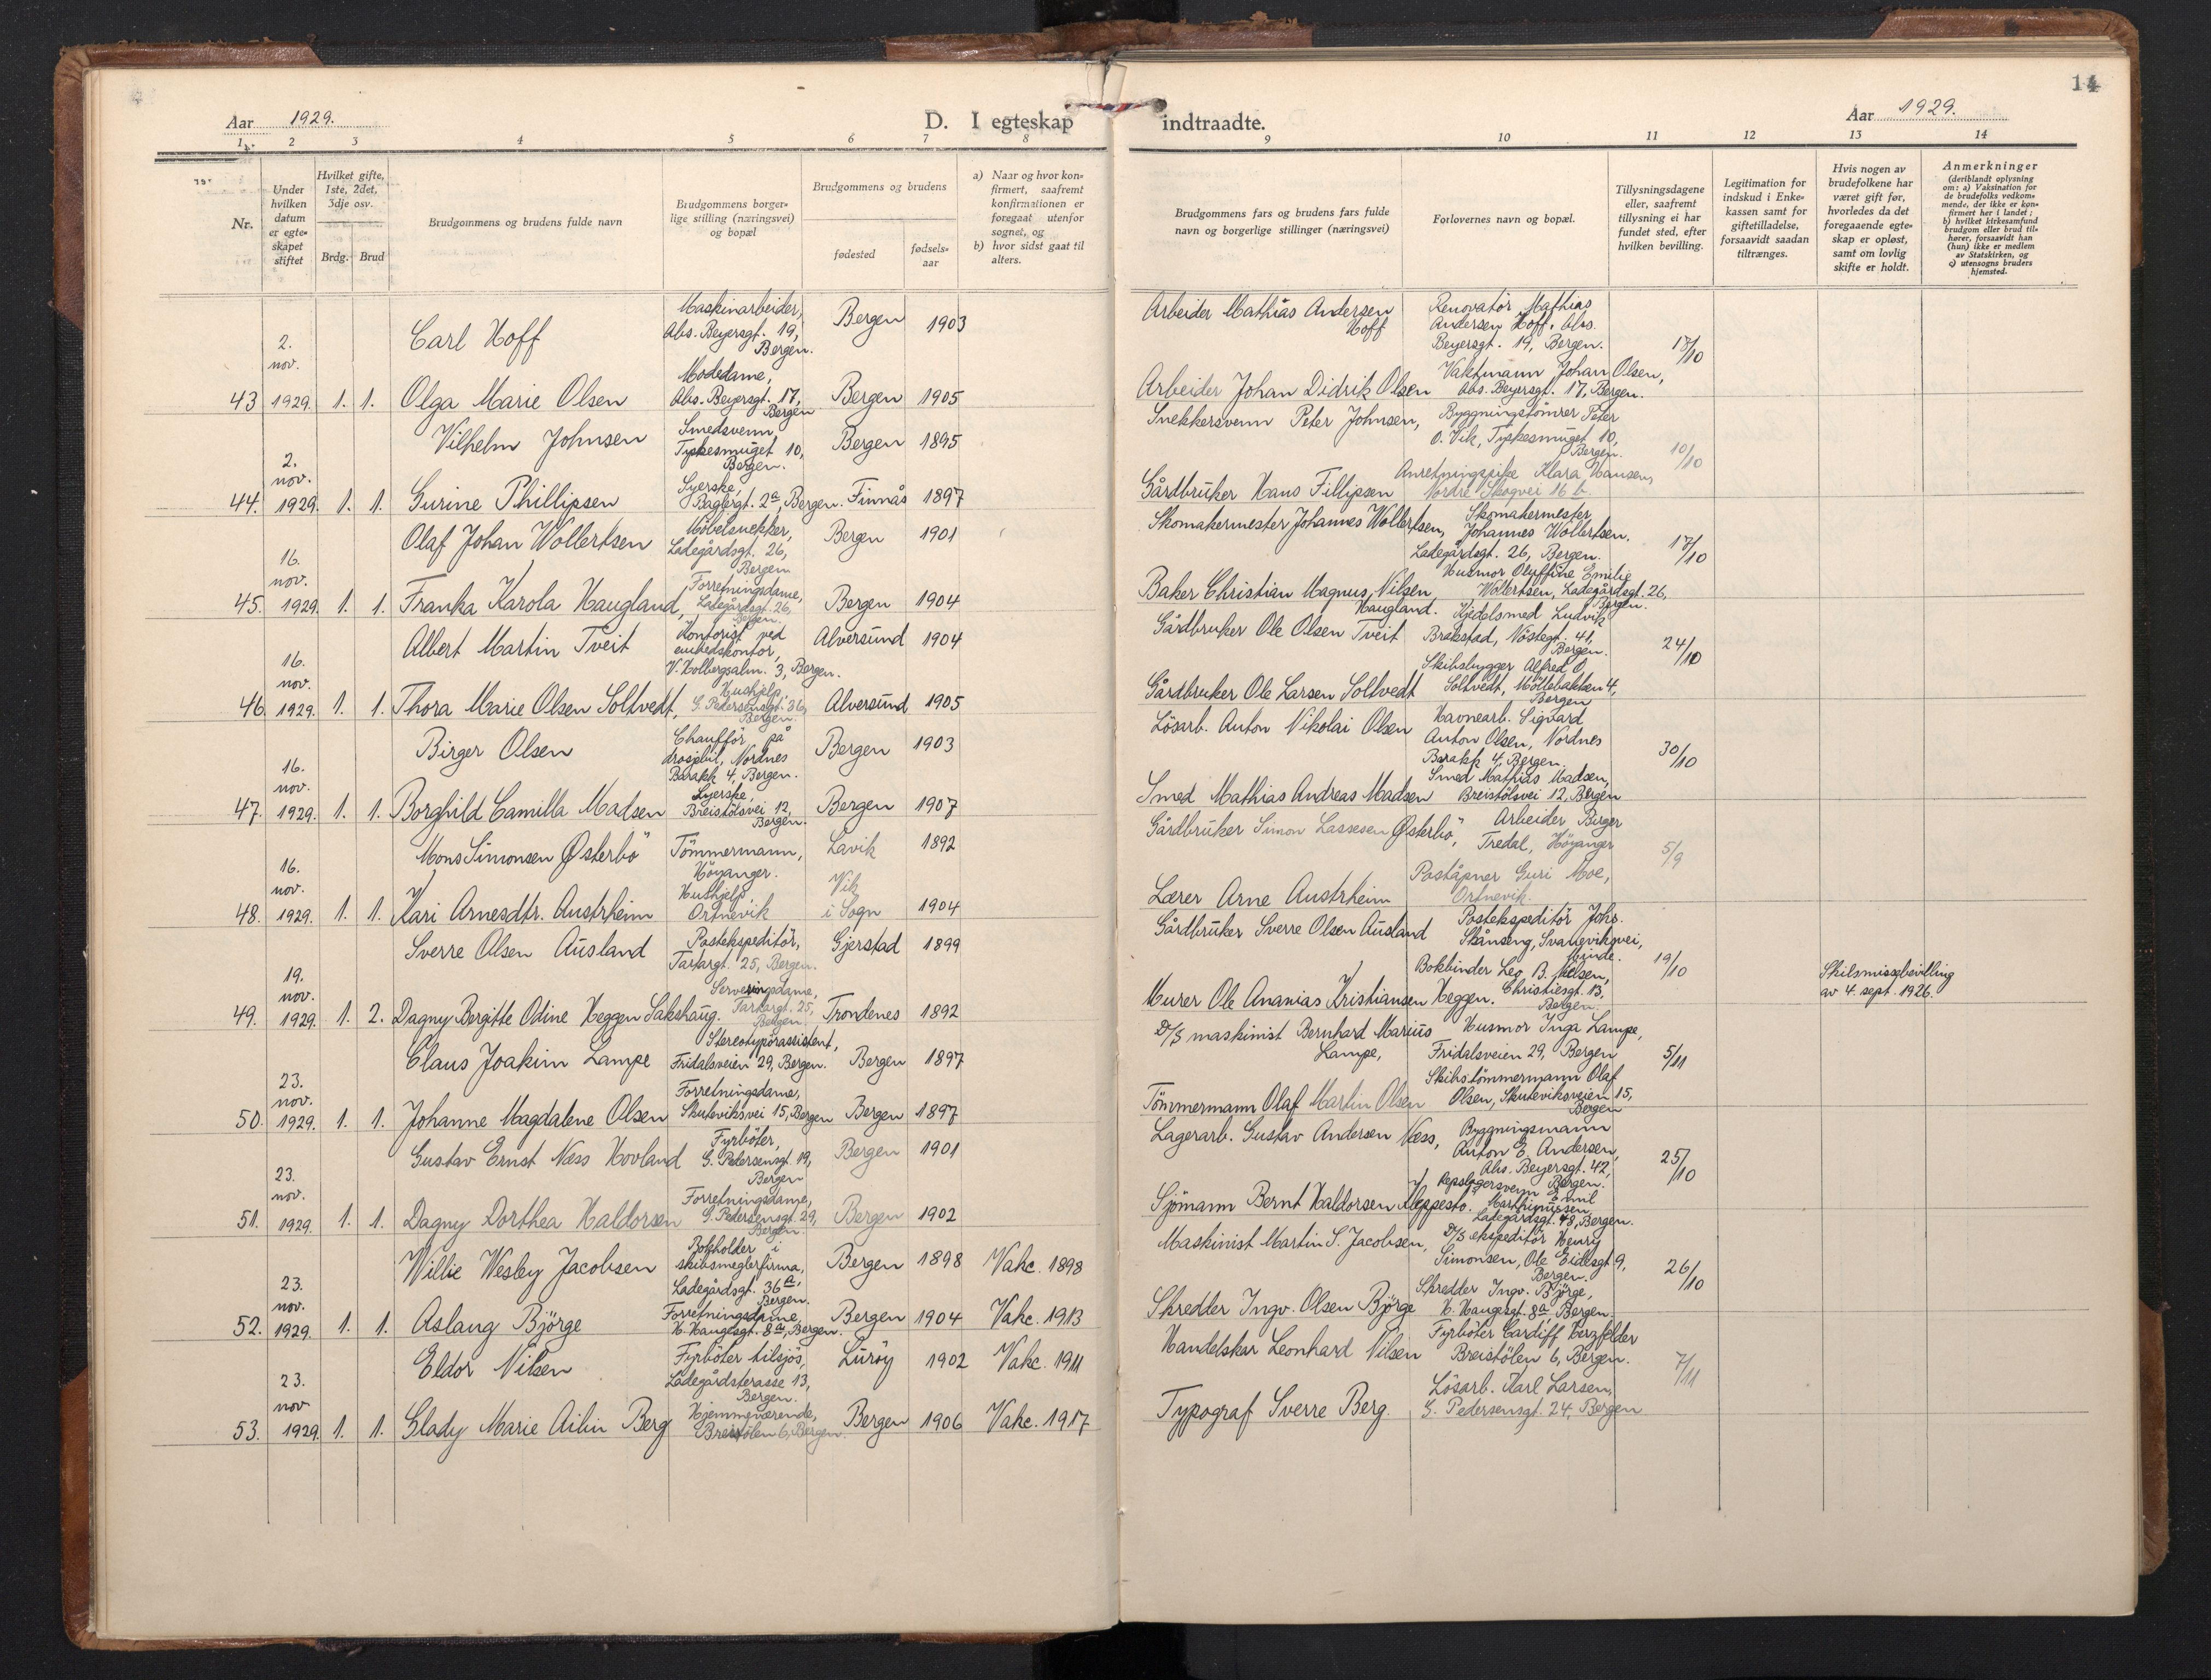 14
Aar 1929.
D. I egteskap indtraadte.
Aar 1929.
1. 2 3 4 5 6 7 8 9 10 11 12 13 14
Nr.
Under hvilken datum er egteskapet stiftet
Hvilket gifte, 1ste, 2det, 3dje osv.
Brdg. Brud
Brudgommens og brudens fulde navn
Brudgommens borgerlige stilling (næringsvei) og bopæl
Brudgommens og brudens
fødested
fødselsaar
a) Naar og hvor konfirmert, saafremt konfirmationen er foregaat utenfor sognet, og
b) hvor sidst gaat til alters.
Brudgommens fars og brudens fars fulde navn og borgerlige stillinger (næringsvei)
Forlovernes navn og bopæl.
Tillysningsdagene eller, saafremt tillysning ei har fundet sted, efter hvilken bevilling.
Legitimation for indskud i Enkekassen samt for giftetilladelse, forsaavidt saadan tiltrænges.
Hvis nogen av brudefolkene har været gift før, hvorledes da det foregaaende egteskap er opløst, samt om lovlig skifte er holdt.
Anmerkninger
(deriblandt oplysning om: a) Vaksination for de brudefolks vedkommende, der ikke er konfirmert her i landet; b) hvilket kirkesamfund brudgom eller brud tilhører, forsaavidt han (hun) ikke er medlem av Statskirken, og c) utensogns bruders hjemsted.
43 2. nov. 1929. 1. 1.
Carl Hoff Maskinarbeider, Abs. Beyersgt. 19, Bergen. Bergen 1903 Arbeider Mathias Andersen Hoff Renovatör Mathias Andersen Hoff, Abs. Beyersgt. 19, Bergen. 17/10
Olga Marie Olsen Modedame, Abs. Beyersgt. 17, Bergen Bergen 1905 Arbeider Johan Didrik Olsen Vaktmann Johan Olsen, Abs. Beyersgt. 17, Bergen.
44. 2. nov. 1929. 1. 1.
Vilhelm Johnsen Smedsvenn Tyskesmuget 10, Bergen. Bergen 1895 Snekkersvenn Peter Johnsen, Byggningstömrer Peter O. Vik, Tyskesmuget 10, Bergen. 10/10
Gurine Phillipsen Syerske, Baglergt. 2a, Bergen. Finnås 1897 Gårdbruker Hans Fillipsen Anretningspike Klara Hansen, Nordre Skogvei 16 b
45. 16. nov. 1929. 1. 1.
Olaf Johan Wollertsen Möbelsnekker, Ladegårdsgt. 26, Bergen Bergen 1901 Skomakermester Johannes Wollertsen, Skomakermester Johannes Wollertsen. Ladegårdsgt. 26, Bergen. 17/10
Franka Karola Haugland, Forretningsdame, Ladegårdsgt. 26, Bergen. Bergen 1904 Baker Christian Magnus Nilsen Haugland. Husmor Oluffine Emilie Wollertsen, Ladegårdsgt. 26, Bergen.
46 16. nov. 1929. 1. 1.
Albert Martin Tveit Kontorist ved embedskontor, V. Holbergsalm. 3, Bergen. Alversund 1904 Gårdbruker Ole Olsen Tveit Kjedelsmed Ludvik Brakstad, Nöstegt. 41, Bergen. 24/10
Thora Marie Olsen Soltvedt, Hushjelp, G. Pedersensgt. 36, Bergen. Alversund 1905 Gårdbruker Ole Larsen Soltvedt Skibsbygger Alfred O. Soltvedt, Möllebakken 4, Bergen
47. 16. nov. 1929. 1. 1.
Birger Olsen Chaufför på drosjebil, Nordnes Barakk 4, Bergen. Bergen 1903 Lösarb. Anton Nikolai Olsen Havnearb. Sigvard Anton Olsen, Nordnes Barakk 4, Bergen. 30/10
Borghild Camilla Madsen Syerske, Breistölsvei 12, Bergen. Bergen 1907 Smed Mathias Andreas Madsen Smed Mathias Madsen, Breistölsvei 12, Bergen
48. 16. nov. 1929. 1. 1.
Mons Simonsen Østerbö Tömmermann, Höyanger. Lavik 1892 Gårdbruker Simon Lassesen Østerbö, Arbeider Birger Tredal, Höyanger 5/9
Kari Arnesdtr. Austrheim Hushjelp Ortnevik Vik i Sogn 1904 Lærer Arne Austrheim Poståpner Guri Moe, Ortnevik.
49. 19. nov. 1929. 1. 2.
Sverre Olsen Ausland Postekspeditör, Tartargt. 25, Bergen. Gjerstad 1899 Gårdbruker Sverre Olsen Ausland Postekspeditör Johs. Skånseng, Svaneviksvei, Minde. 19/10
Dagny Bergitte Odine Heggen Sakshaug. Serveringsdame, Tartargt. 25, Bergen. Trondenes 1892 Murer Ole Ananias Kristiansen Heggen. Bokbinder Leo B. Nilsen, Christiesgt. 13, Bergen. Skilsmissebevilling av 4. sept. 1926.
50. 23. nov. 1929. 1. 1.
Claus Joakim Lampe Stereotypörassistent, Fridalsveien 29, Bergen. Bergen 1897 D/S maskinist Bernhard Marius Lampe, Husmor Inga Lampe, Fridalsveien 29, Bergen 5/11
Johanne Magdalene Olsen Forretningsdame, Skuteviksvei 15, Bergen Bergen 1897 Tömmermann Olaf Martin Olsen Skibstömmermann Olaf Olsen, Skuteviksveien 15, Bergen
51. 23. nov. 1929. 1. 1.
Gustav Ernst Næss Hovland Fyrböter, G. Pedersensgt. 19, Bergen Bergen 1901 Lagerarb. Gustav Andersen Næss, Byggningsmann Anton E. Andersen, Abs. Beyersgt. 42, Bergen. 25/10
Dagny Dorthea Haldorsen Forretningsdame, G. Pedersensgt. 29, Bergen. Bergen 1902 Sjömann Bernt Haldorsen Kleppestö. Repslagersvenn Emil Marthinussen, Ladegårdsgt. 48, Bergen.
52. 23. nov. 1929. 1. 1.
Willie Wesley Jacobsen Bokholder i skibsmeglerfirma, Ladegårdsgt. 36a, Bergen. Bergen 1898 Vakc. 1898 Maskinist Martin S. Jacobsen, D/S ekspeditör Henry Simonsen, Ole Eidesgt 9, Bergen. 26/10
Aslaug Björge Forretningsdame, H. Haugesgt. 8a, Bergen. Bergen 1904 Vakc. 1913 Skredder Ingv. Olsen Björge Skredder Ingv. Björge, H. Haugesgt. 8a Bergen.
53. 23. nov 1929. 1. 1.
Eldor Nilsen Fyrböter tilsjös, Ladegårdsterasse 13, Bergen. Luröy 1902 Vakc. 1911 Handelskar Leonhard Nilsen Fyrböter Cardiff Herzfelder Breistölen 6, Bergen. 7/11
Glady Marie Ailin Berg Hjemmeværende, Breistölen 6, Bergen. Bergen 1906 Vakc. 1917 Typograf Sverre Berg. Lösarb. Karl Larsen, G. Pedersensgt. 24, Bergen